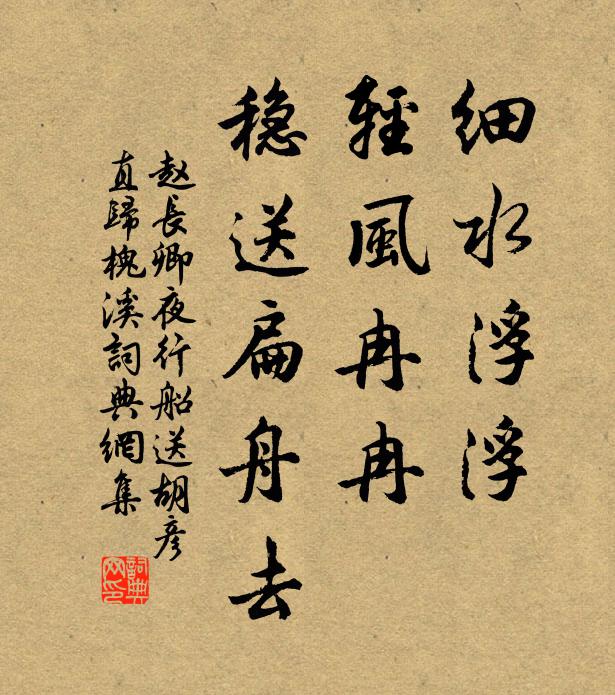 细水浮浮
輕風冉冉
穏送扁舟去
赵長卿夜行船送胡彦
直歸槐溪詞典網集
詞典
网印